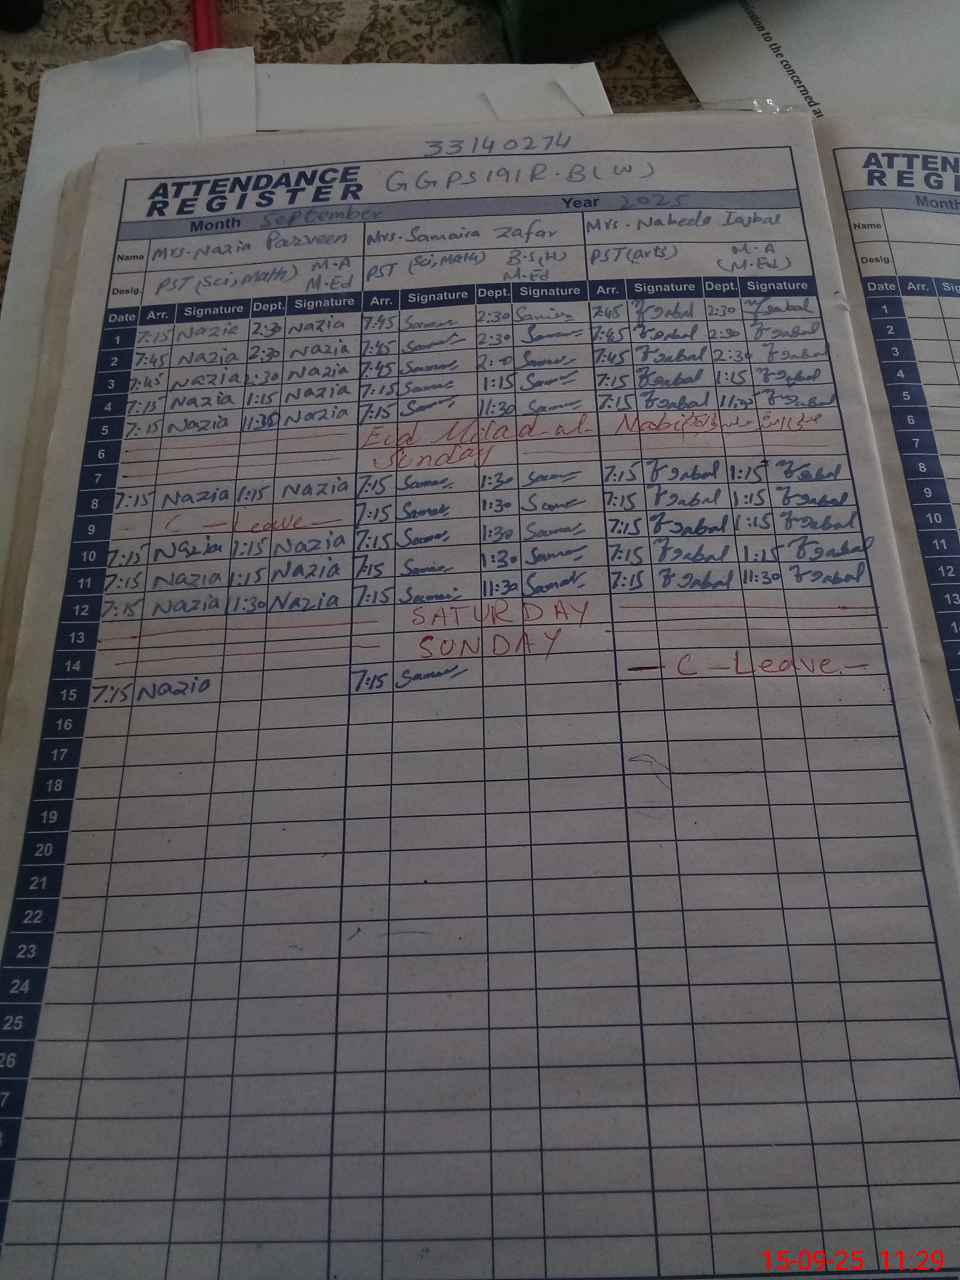 ion to the concerned au
33140274
ATTENDANCE REGISTER GGPS 191 R.B (W)
Month September Year 2025
Name Mrs. Nazia Parveen Mrs. Samaira Zafar Mrs. Naheela Iqbal
Desig. PST (Sci, Math) M.A M.Ed PST (Sci, Math) B.S(H) M.Ed PST (arts) M.A (M.Ed)
Date Arr. Signature Dept. Signature Arr. Signature Dept. Signature Arr. Signature Dept. Signature
1 7:15 Nazia 2:30 Nazia 7:45 2:30 7:45 Iqbal 2:30 Iqbal
2 7:45 Nazia 2:30 Nazia 7:45 2:30 7:45 Iqbal 2:30 Iqbal
3 7:45 Nazia 2:30 Nazia 7:45 7:45 Iqbal 2:30 Iqbal
4 7:15 Nazia 1:15 Nazia 7:15 1:15 7:15 Iqbal 1:15 Iqbal
5 7:15 Nazia 11:30 Nazia 7:15 11:30 7:15 Iqbal 11:30 Iqbal
6 Eid Milad-ul- Nabi
7 Sunday
8 7:15 Nazia 1:15 Nazia 7:15 1:30 7:15 Iqbal 1:15 Iqbal
9 - C - Leave - 7:15 1:30 7:15 Iqbal 1:15 Iqbal
10 7:15 Nazia 1:15 Nazia 7:15 1:30 7:15 Iqbal 1:15 Iqbal
11 7:15 Nazia 1:15 Nazia 7:15 1:30 7:15 Iqbal 1:15 Iqbal
12 7:15 Nazia 11:30 Nazia 7:15 11:30 7:15 Iqbal 11:30 Iqbal
13 SATURDAY
14 SUNDAY
15 7:15 Nazia 7:15 - C - Leave -
16
17
18
19
20
21
22
23
24
25
26
7
ATTEN
REGI
Month
Name
Desig.
Date Arr. Sig
1
2
3
4
5
6
7
8
9
10
11
12
13
15-09-25 11:29